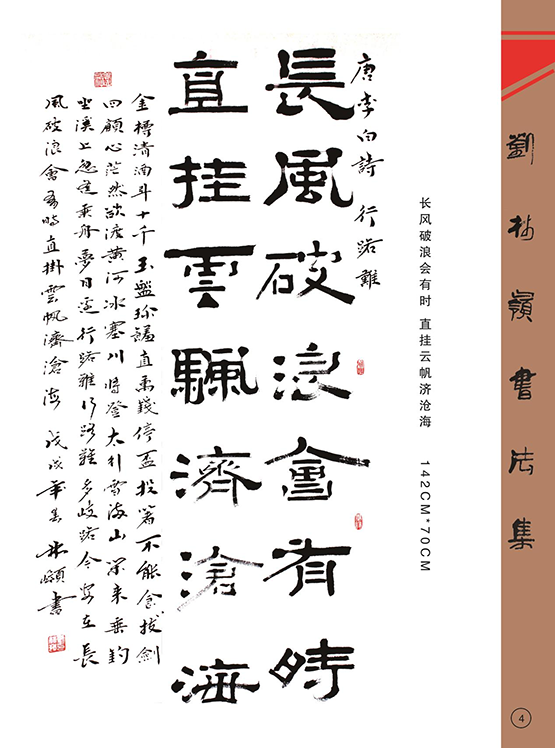 劉林嶺書法集
长风破浪会有时 直挂云帆济沧海 142CM*70CM
唐李白詩 行路難
長風破浪會有時
直挂雲颿濟滄海
金樽清酒斗十千玉盤珍饈直萬錢停盃投箸不能食拔劍
四顧心茫然欲渡黃河冰塞川將登太行雪滿山閑來垂釣
坐溪上忽復乘舟夢日邊行路難行路難多歧路今安在長
風破浪會有時直掛雲帆濟滄海 戊戌年春 林嶺書
4